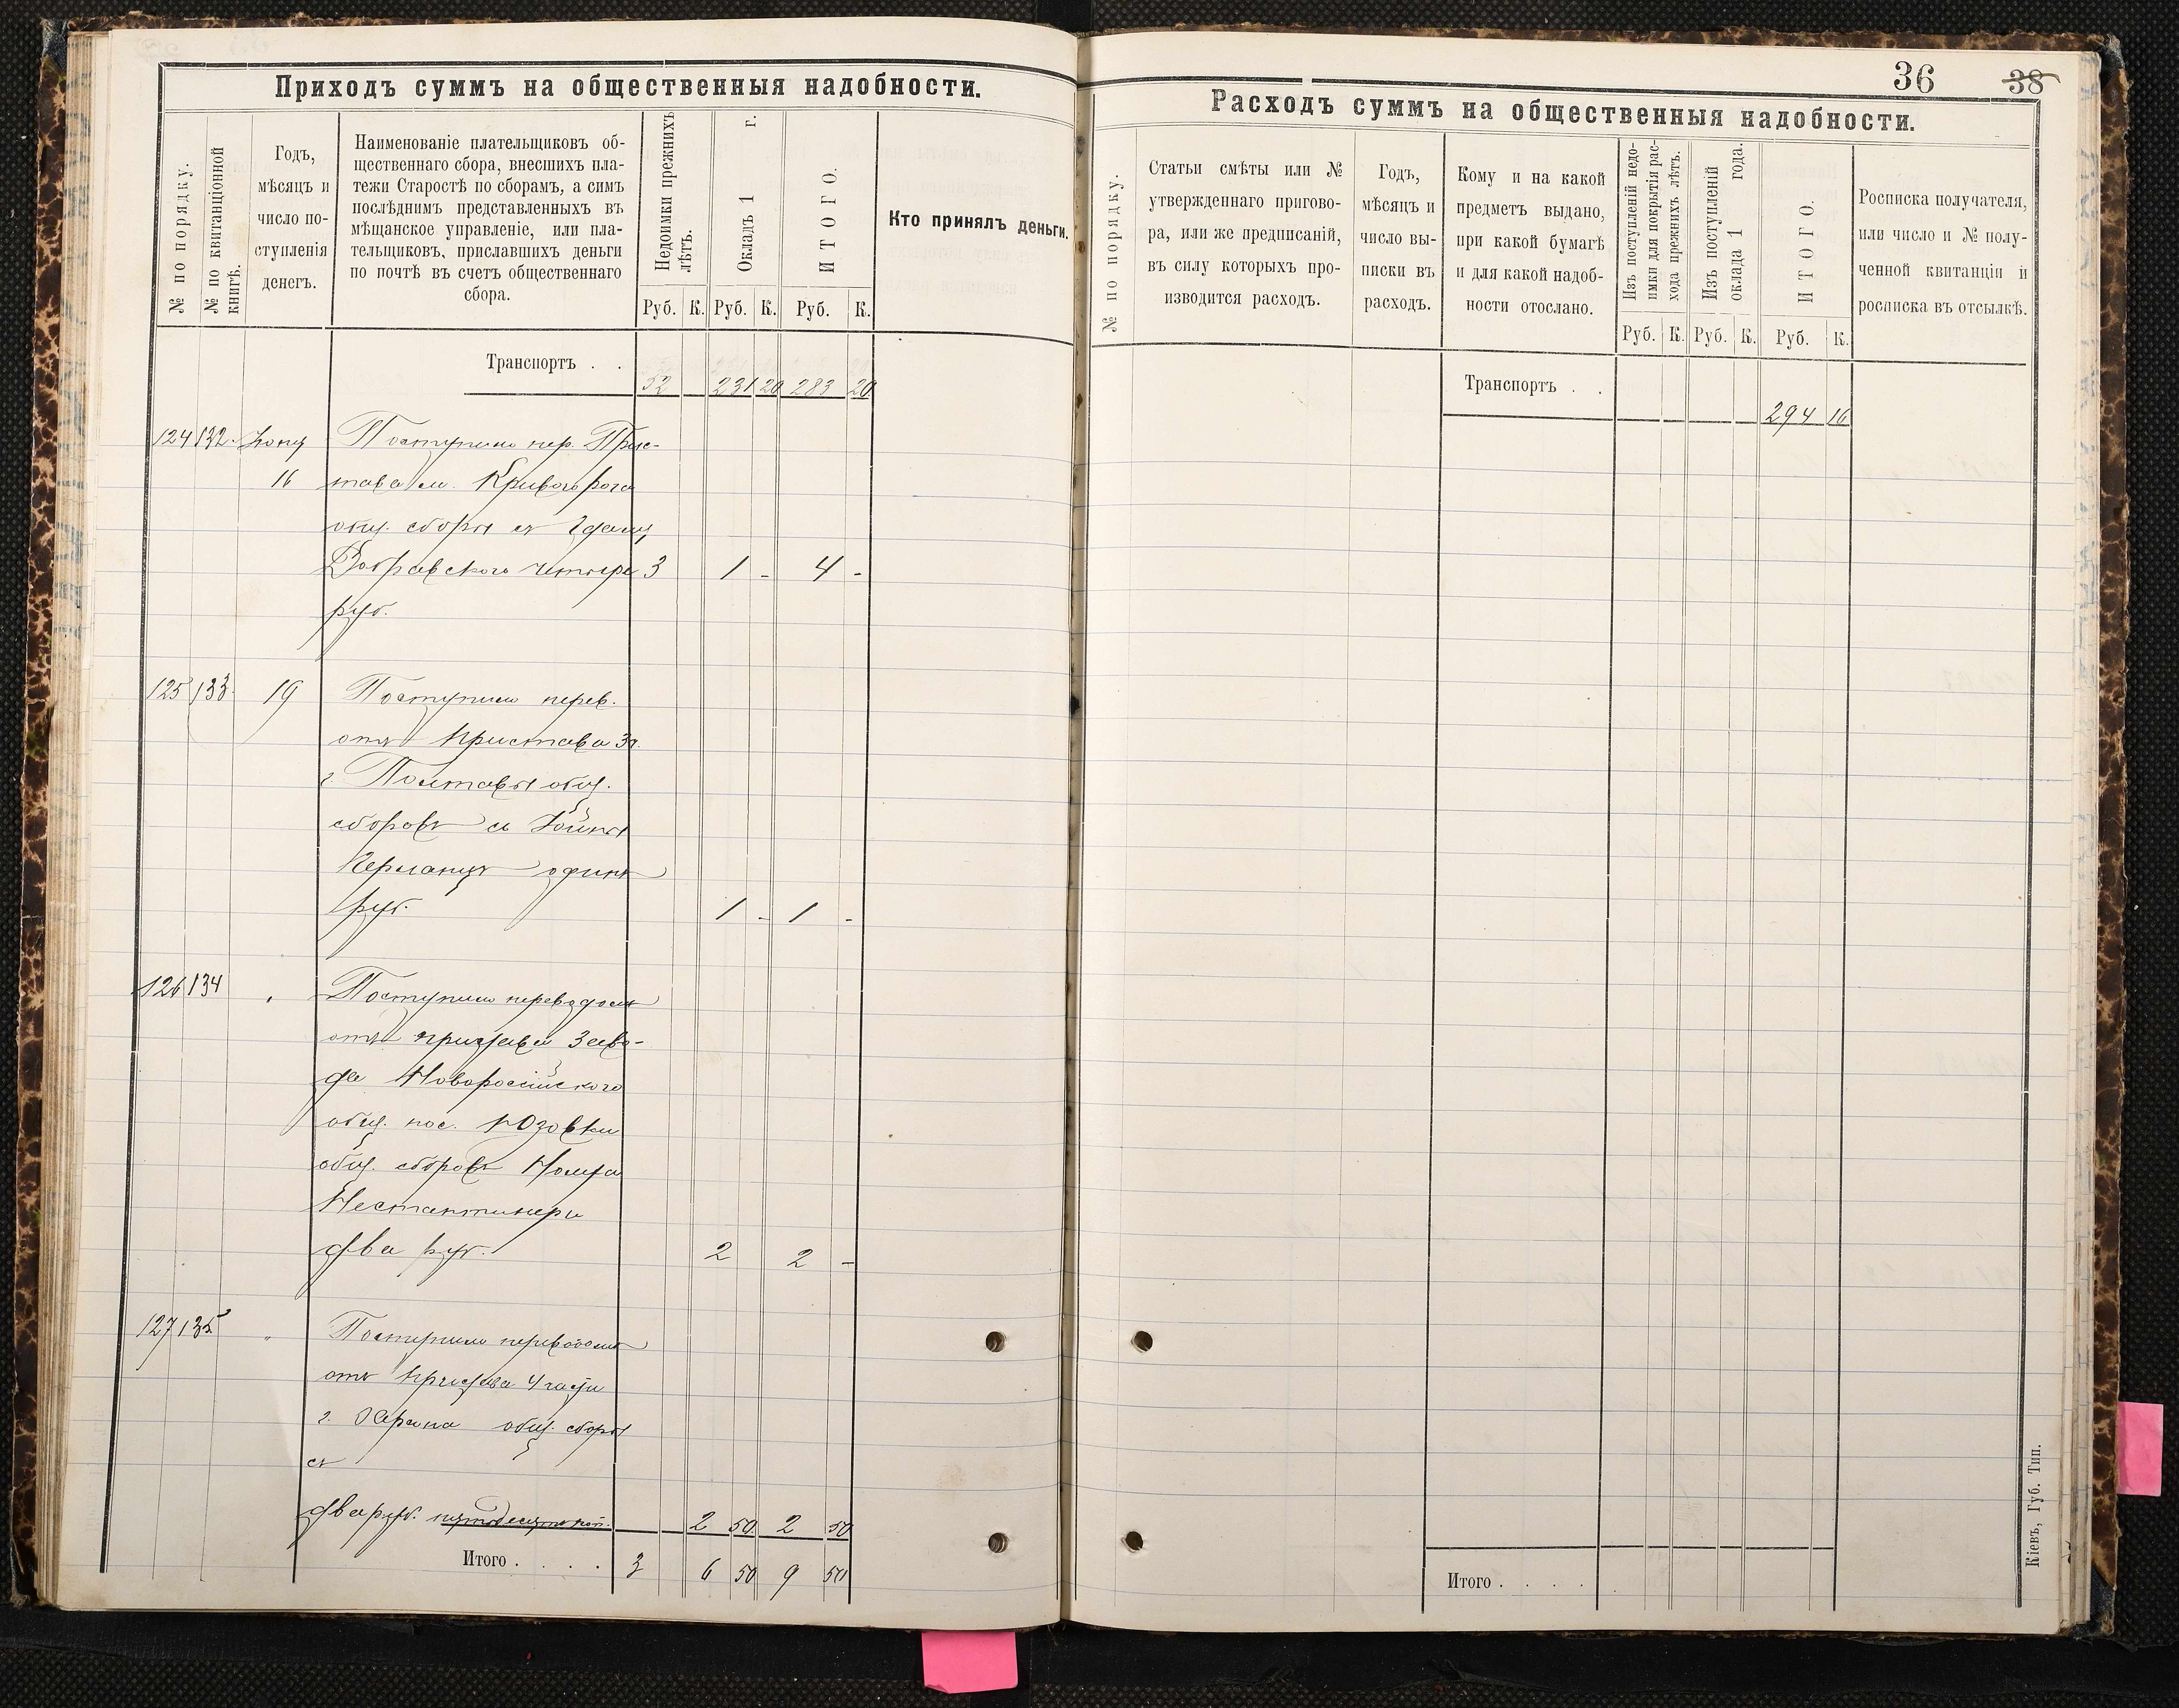 Приходъ суммъ на общественныя надобности.
№ по порядку.
№ по квитанціонной
книгѣ.
Годъ,
мѣсяцъ и
число по-
ступленія
денегъ.
Наименованіе плательщиковъ об-
щественнаго сбора, внесшихъ пла-
тежи Старостѣ по сборамъ, а симъ
послѣднимъ представленныхъ въ
мѣщанское управленіе, или пла-
тельщиковъ, приславшихъ деньги
по почтѣ въ счетъ общественнаго
сбора.
Недоимки прежнихъ
лѣтъ.
Окладъ 1 г.
ИТОГО.
Кто принялъ деньги.
Руб. К. Руб. К. Руб. К.
Транспортъ . .
52 231 20 283 20
124 132
16 става м. Кривого рога
общ. сборы съ
четыре 3 1 - 4 -
руб.
125 133 19 Поступило перев.
отъ пристава 3 ч.
г. Полтавы общ.
сборовъ съ
одинъ
руб. 1 - 1 -
126 134 " Поступило переводомъ
отъ пристава Заво-
да Новороссійского
общ. пос. Юзовки
общ. сборовъ
два руб. 2 2 -
127 135 " Поступило переводомъ
отъ пристава 4 части
г. общ. сборы
съ
два руб. пятьдесятъ коп. 2 50 2 50
Итого . . . . 3 6 50 9 50
36 38
Расходъ суммъ на общественныя надобности.
№ по порядку.
Статьи смѣты или №
утвержденнаго пригово-
ра, или же предписаній,
въ силу которыхъ про-
изводится расходъ.
Годъ,
мѣсяцъ и
число вы-
писки въ
расходъ.
Кому и на какой
предметъ выдано,
при какой бумагѣ
и для какой надоб-
ности отослано.
Изъ поступленій недо-
имки для покрытія рас-
хода прежнихъ лѣтъ.
Изъ поступленій
оклада 1 года.
ИТОГО.
Росписка получателя,
или число и № полу-
ченной квитанціи и
росписка въ отсылкѣ.
Руб. К. Руб. К. Руб. К.
Транспортъ . .
294 16
Итого . . . . .
Кіевъ, Губ. Тип.